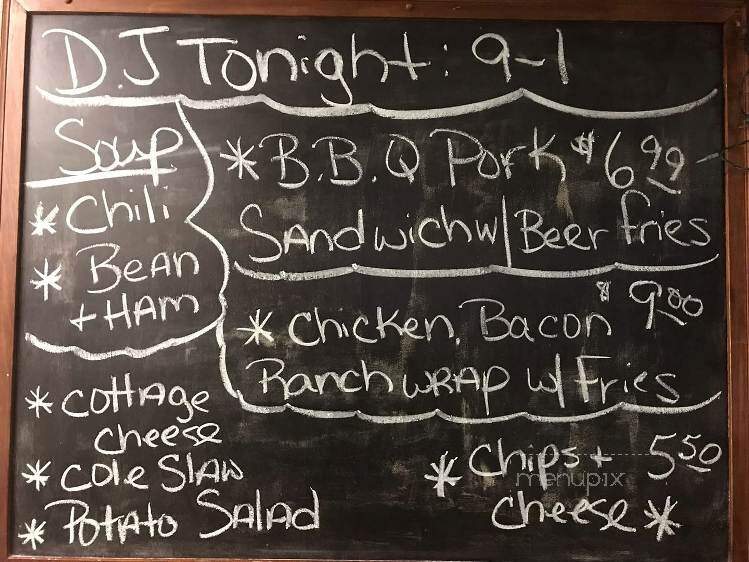 D.J Tonight: 9-1
Soup
* Chili
* Bean
+ Ham
* B.B.Q Pork $6.99
Sandwich w/ Beer fries
* Chicken, Bacon $9.00
Ranch wrap w/ Fries
* Cottage
cheese
* Cole Slaw
* Potato Salad
* Chips + 5.50
cheese *
menupix